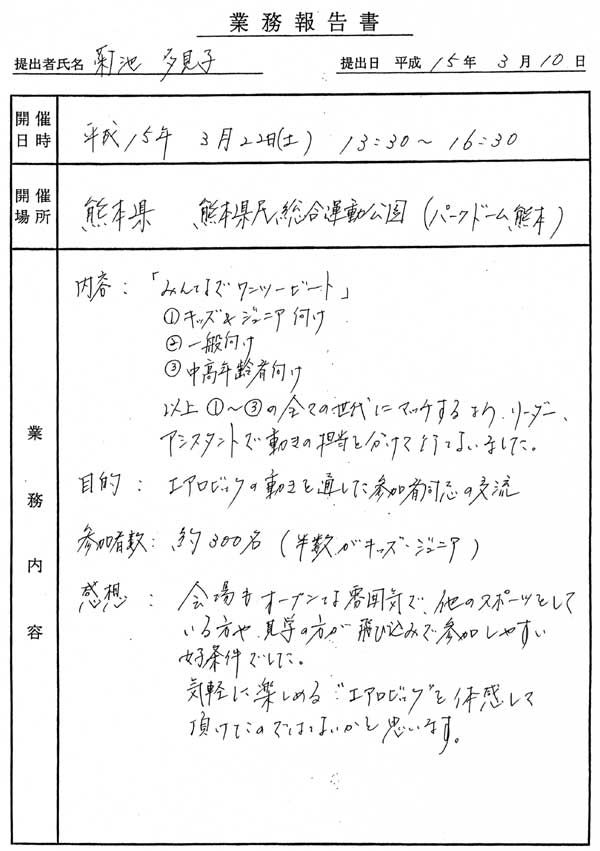 業務報告書
提出者氏名 菊池 多見子 提出日 平成 15年 3月10日
開催日時 平成15年 3月22日(土) 13:30～16:30
開催場所 熊本県 熊本県民総合運動公園(パークドーム熊本)
業務内容
内容:「みんなでワンツービート」
①キッズ&ジュニア向け
②一般向け
③中高年齢者向け
以上①～③の全ての世代にマッチするよう、リーダー、
アシスタントで動きの担当を分けて行ないました。
目的:エアロビックの動きを通した参加者同志の交流
参加者数:約300名(半数がキッズ・ジュニア)
感想:会場もオープンな雰囲気で、他のスポーツをして
いる方や、見学の方が飛び込みで参加しやすい
好条件でした。
気軽に楽しめる"エアロビック"を体感して
頂けたのではないかと思います。